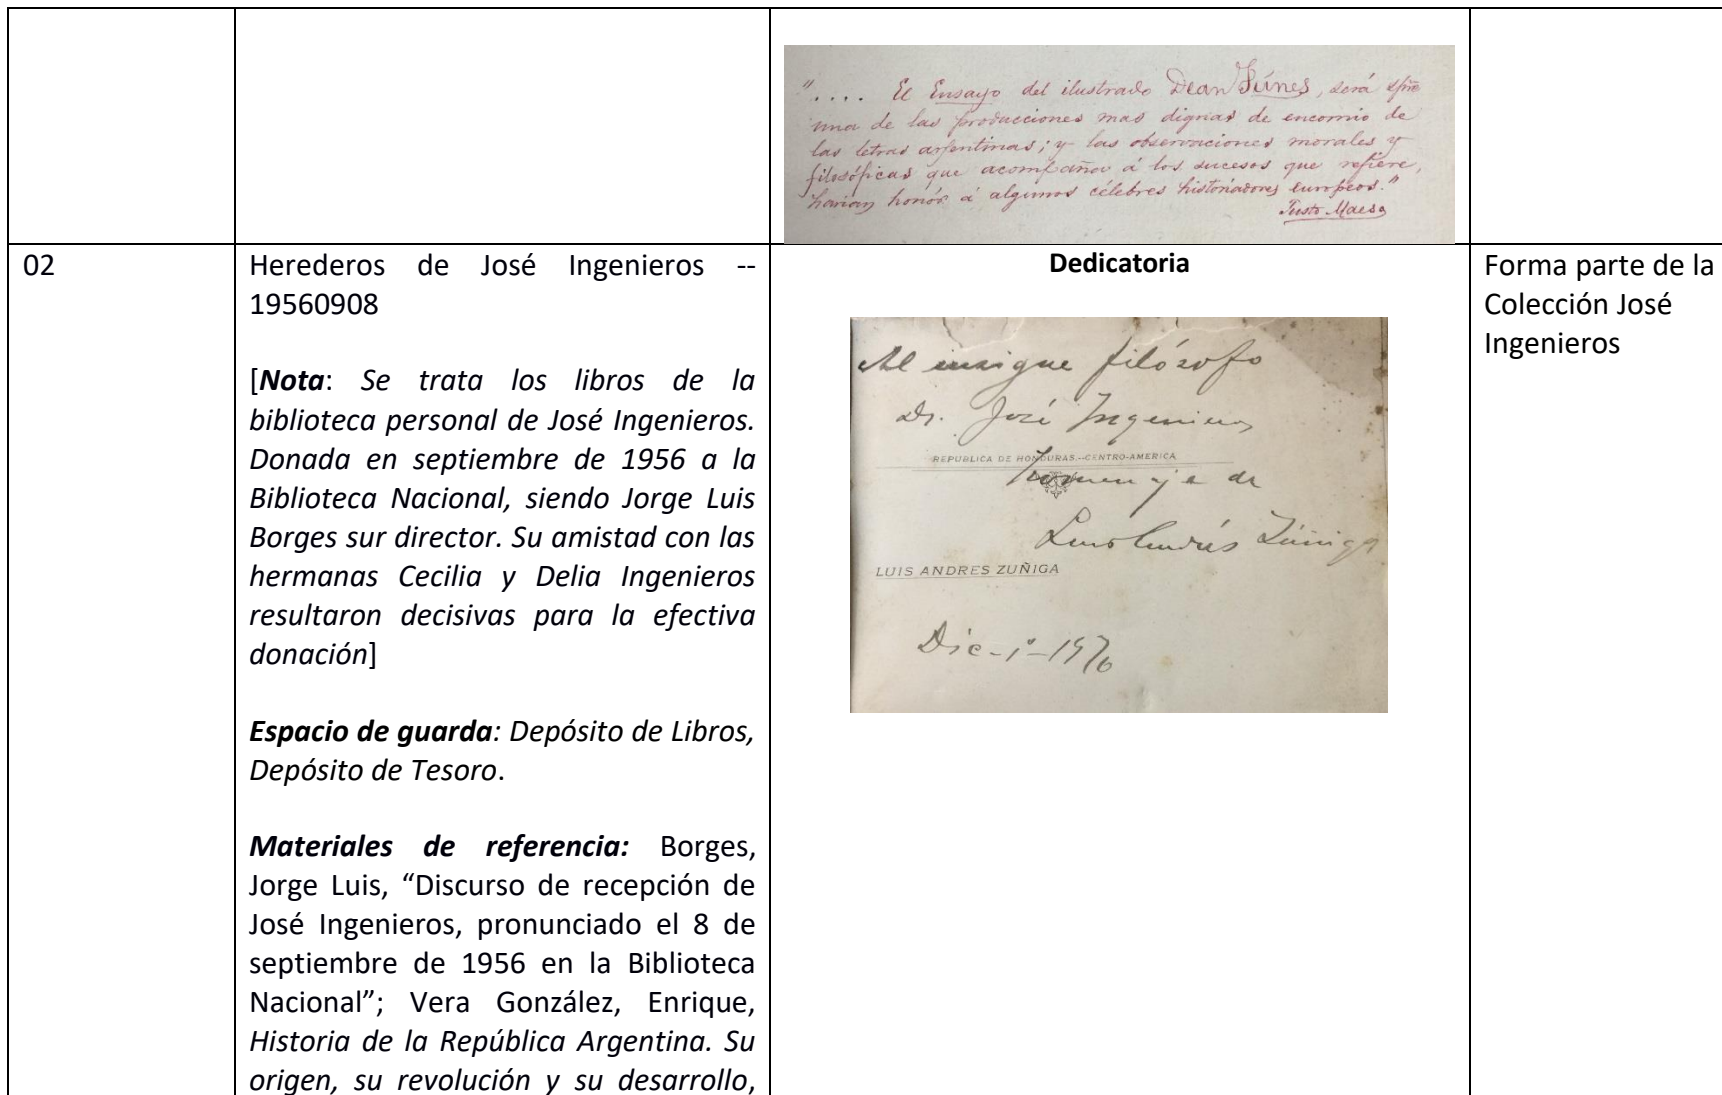 ".... El Ensayo del ilustrado Dean Fúnes, será
una de las producciones mas dignas de encomio de
las letras argentinas; y las observaciones morales y
filosóficas que acompaño á los sucesos que refiere,
harian honór á algunos célebres historiadores europeos."
Justo Maeso
02
Herederos de José Ingenieros --
19560908
[Nota: Se trata los libros de la
biblioteca personal de José Ingenieros.
Donada en septiembre de 1956 a la
Biblioteca Nacional, siendo Jorge Luis
Borges sur director. Su amistad con las
hermanas Cecilia y Delia Ingenieros
resultaron decisivas para la efectiva
donación]
Espacio de guarda: Depósito de Libros,
Depósito de Tesoro.
Materiales de referencia: Borges,
Jorge Luis, “Discurso de recepción de
José Ingenieros, pronunciado el 8 de
septiembre de 1956 en la Biblioteca
Nacional”; Vera González, Enrique,
Historia de la República Argentina. Su
origen, su revolución y su desarrollo,
Dedicatoria
Al insigne filósofo
Dr. José Ingenieros
REPUBLICA DE HONDURAS.--CENTRO-AMERICA
homenaje de
Luis Andrés Zúñiga
LUIS ANDRES ZUÑIGA
Dic-1º-
Forma parte de la
Colección José
Ingenieros